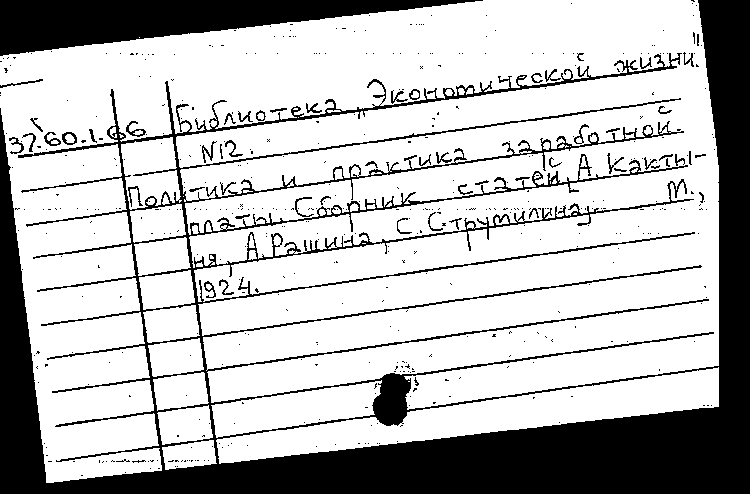 37.60.1.66 Библиотека „Экономической жизни"
N12.
Политика и практика заработной
платы. Сборник статей [А. Какты-
ня, А. Рашина, С. Струмилина]. М.,
1924.